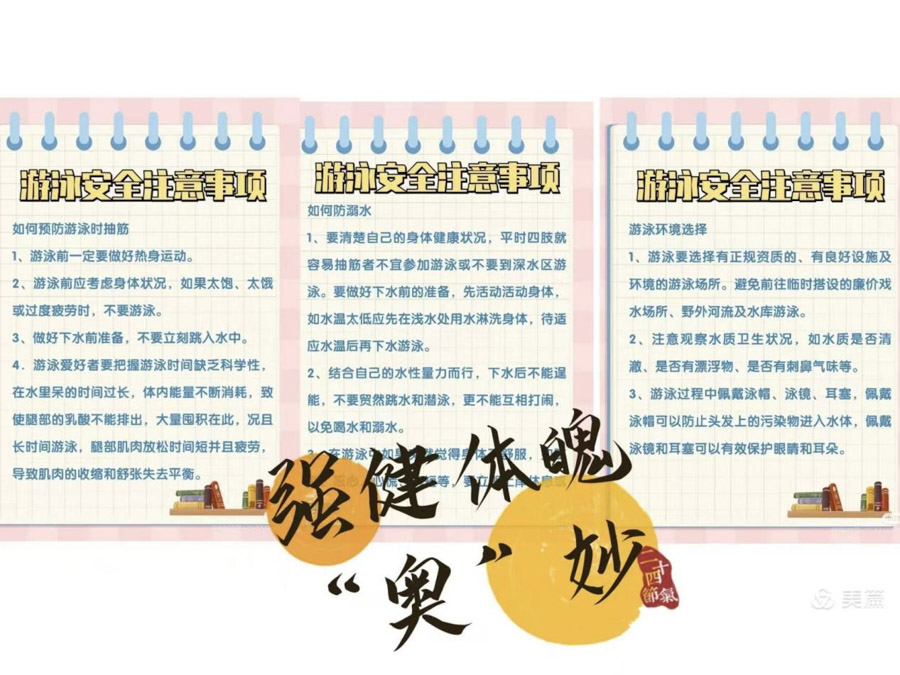 游泳安全注意事项
如何预防游泳时抽筋
1、游泳前一定要做好热身运动。
2、游泳前应考虑身体状况，如果太饱、太饿
或过度疲劳时，不要游泳。
3、做好下水前准备，不要立刻跳入水中。
4．游泳爱好者要把握游泳时间缺乏科学性，
在水里呆的时间过长，体内能量不断消耗，致
使腿部的乳酸不能排出，大量囤积在此，况且
长时间游泳，腿部肌肉放松时间短并且疲劳，
导致肌肉的收缩和舒张失去平衡。
游泳安全注意事项
如何防溺水
1、要清楚自己的身体健康状况，平时四肢就
容易抽筋者不宜参加游泳或不要到深水区游
泳。要做好下水前的准备，先活动活动身体，
如水温太低应先在浅水处用水淋洗身体，待适
应水温后再下水游泳。
2、结合自己的水性量力而行，下水后不能逞
能，不要贸然跳水和潜泳，更不能互相打闹，
以免喝水和溺水。
在游泳中如果 觉得身体 舒服，
等，要立 上岸休息或
游泳安全注意事项
游泳环境选择
1、游泳要选择有正规资质的、有良好设施及
环境的游泳场所。避免前往临时搭设的廉价戏
水场所、野外河流及水库游泳。
2、注意观察水质卫生状况，如水质是否清
澈、是否有漂浮物、是否有刺鼻气味等。
3、游泳过程中佩戴泳帽、泳镜、耳塞，佩戴
泳帽可以防止头发上的污染物进入水体，佩戴
泳镜和耳塞可以有效保护眼睛和耳朵。
强健体魄
“奥”妙
二十四節氣
美篇